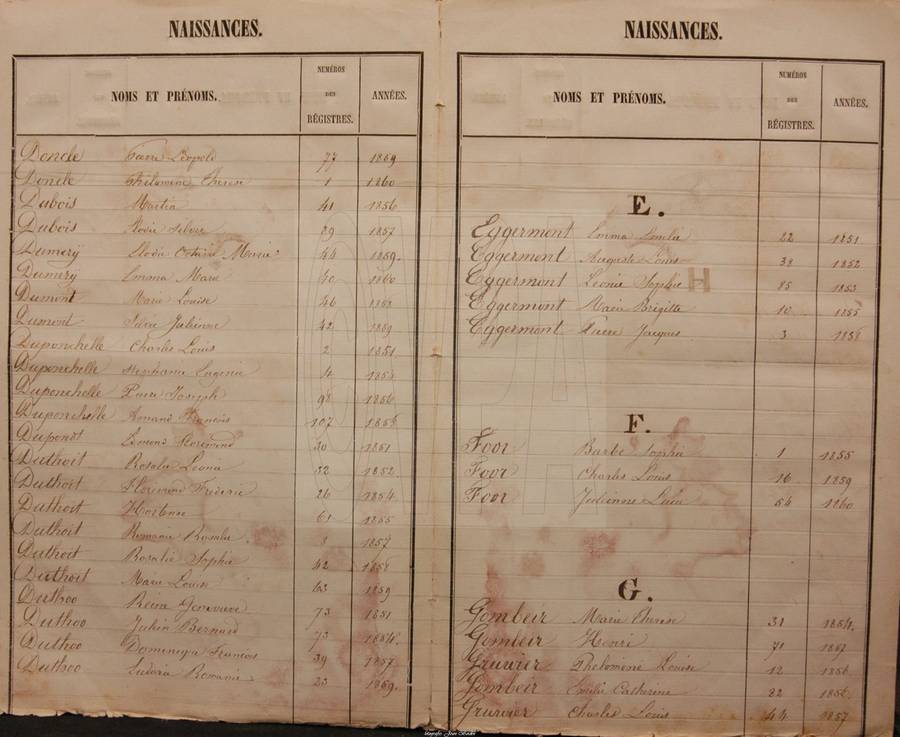 NAISSANCES.
NOMS ET PRÉNOMS. NUMÉROS DES RÉGISTRES. ANNÉES.
Doncle Léopold 77 1859
Doncle Philomène Thérèse 1 1860
Dubois Martin 41 1856
Dubois Silvie 29 1857
Dumery Octavie Marie 44 1859.
Dumery Emma Marie 40 1860
Dumont Marie Louise 46
Dumont Julienne 42 1859
Duponchelle Charles Louis 2 1851
Duponchelle Stephanie Eugenie 4
Duponchelle Pierre Joseph 98 1856
Duponchelle Armand François 107
Dupondt Florimond 30 1851
Duthoit Rosalie Leonie 32 1852
Duthoit Florimond Frédéric 26 1854
Duthoit Hortense 61 1855
Duthoit Romanie Rosalie 1857
Duthoit Rosalie Sophie 42 1858
Duthoit Marie Louise 63 1859
Duthoo Reine Genevieve 73 1851
Duthoo Julien Bernard 73
Duthoo Dominique Francois 39 1857
Duthoo Ludovic Romanie 23 1859.
NAISSANCES.
NOMS ET PRÉNOMS. NUMÉROS DES RÉGISTRES. ANNÉES.
E.
Eggermont Emma 22 1851
Eggermont Auguste Louis 38 1852
Eggermont Léonie Sophie 85 1853
Eggermont Marie Brigitte 10 1855
Eggermont Pierre Jacques 3 1858
F.
Foor Barbe Sophie 1 1855
Foor Charles Louis 16 1859
Foor Julienne 54 1860
G.
Gombeir Marie Therese 31 1854.
Gombeir Henri 71 1857
Gruwier Phelomene Louise 12 1856
Gombeir Emilie Catherine 82 1856
Gruwier Charles Louis 44 1857